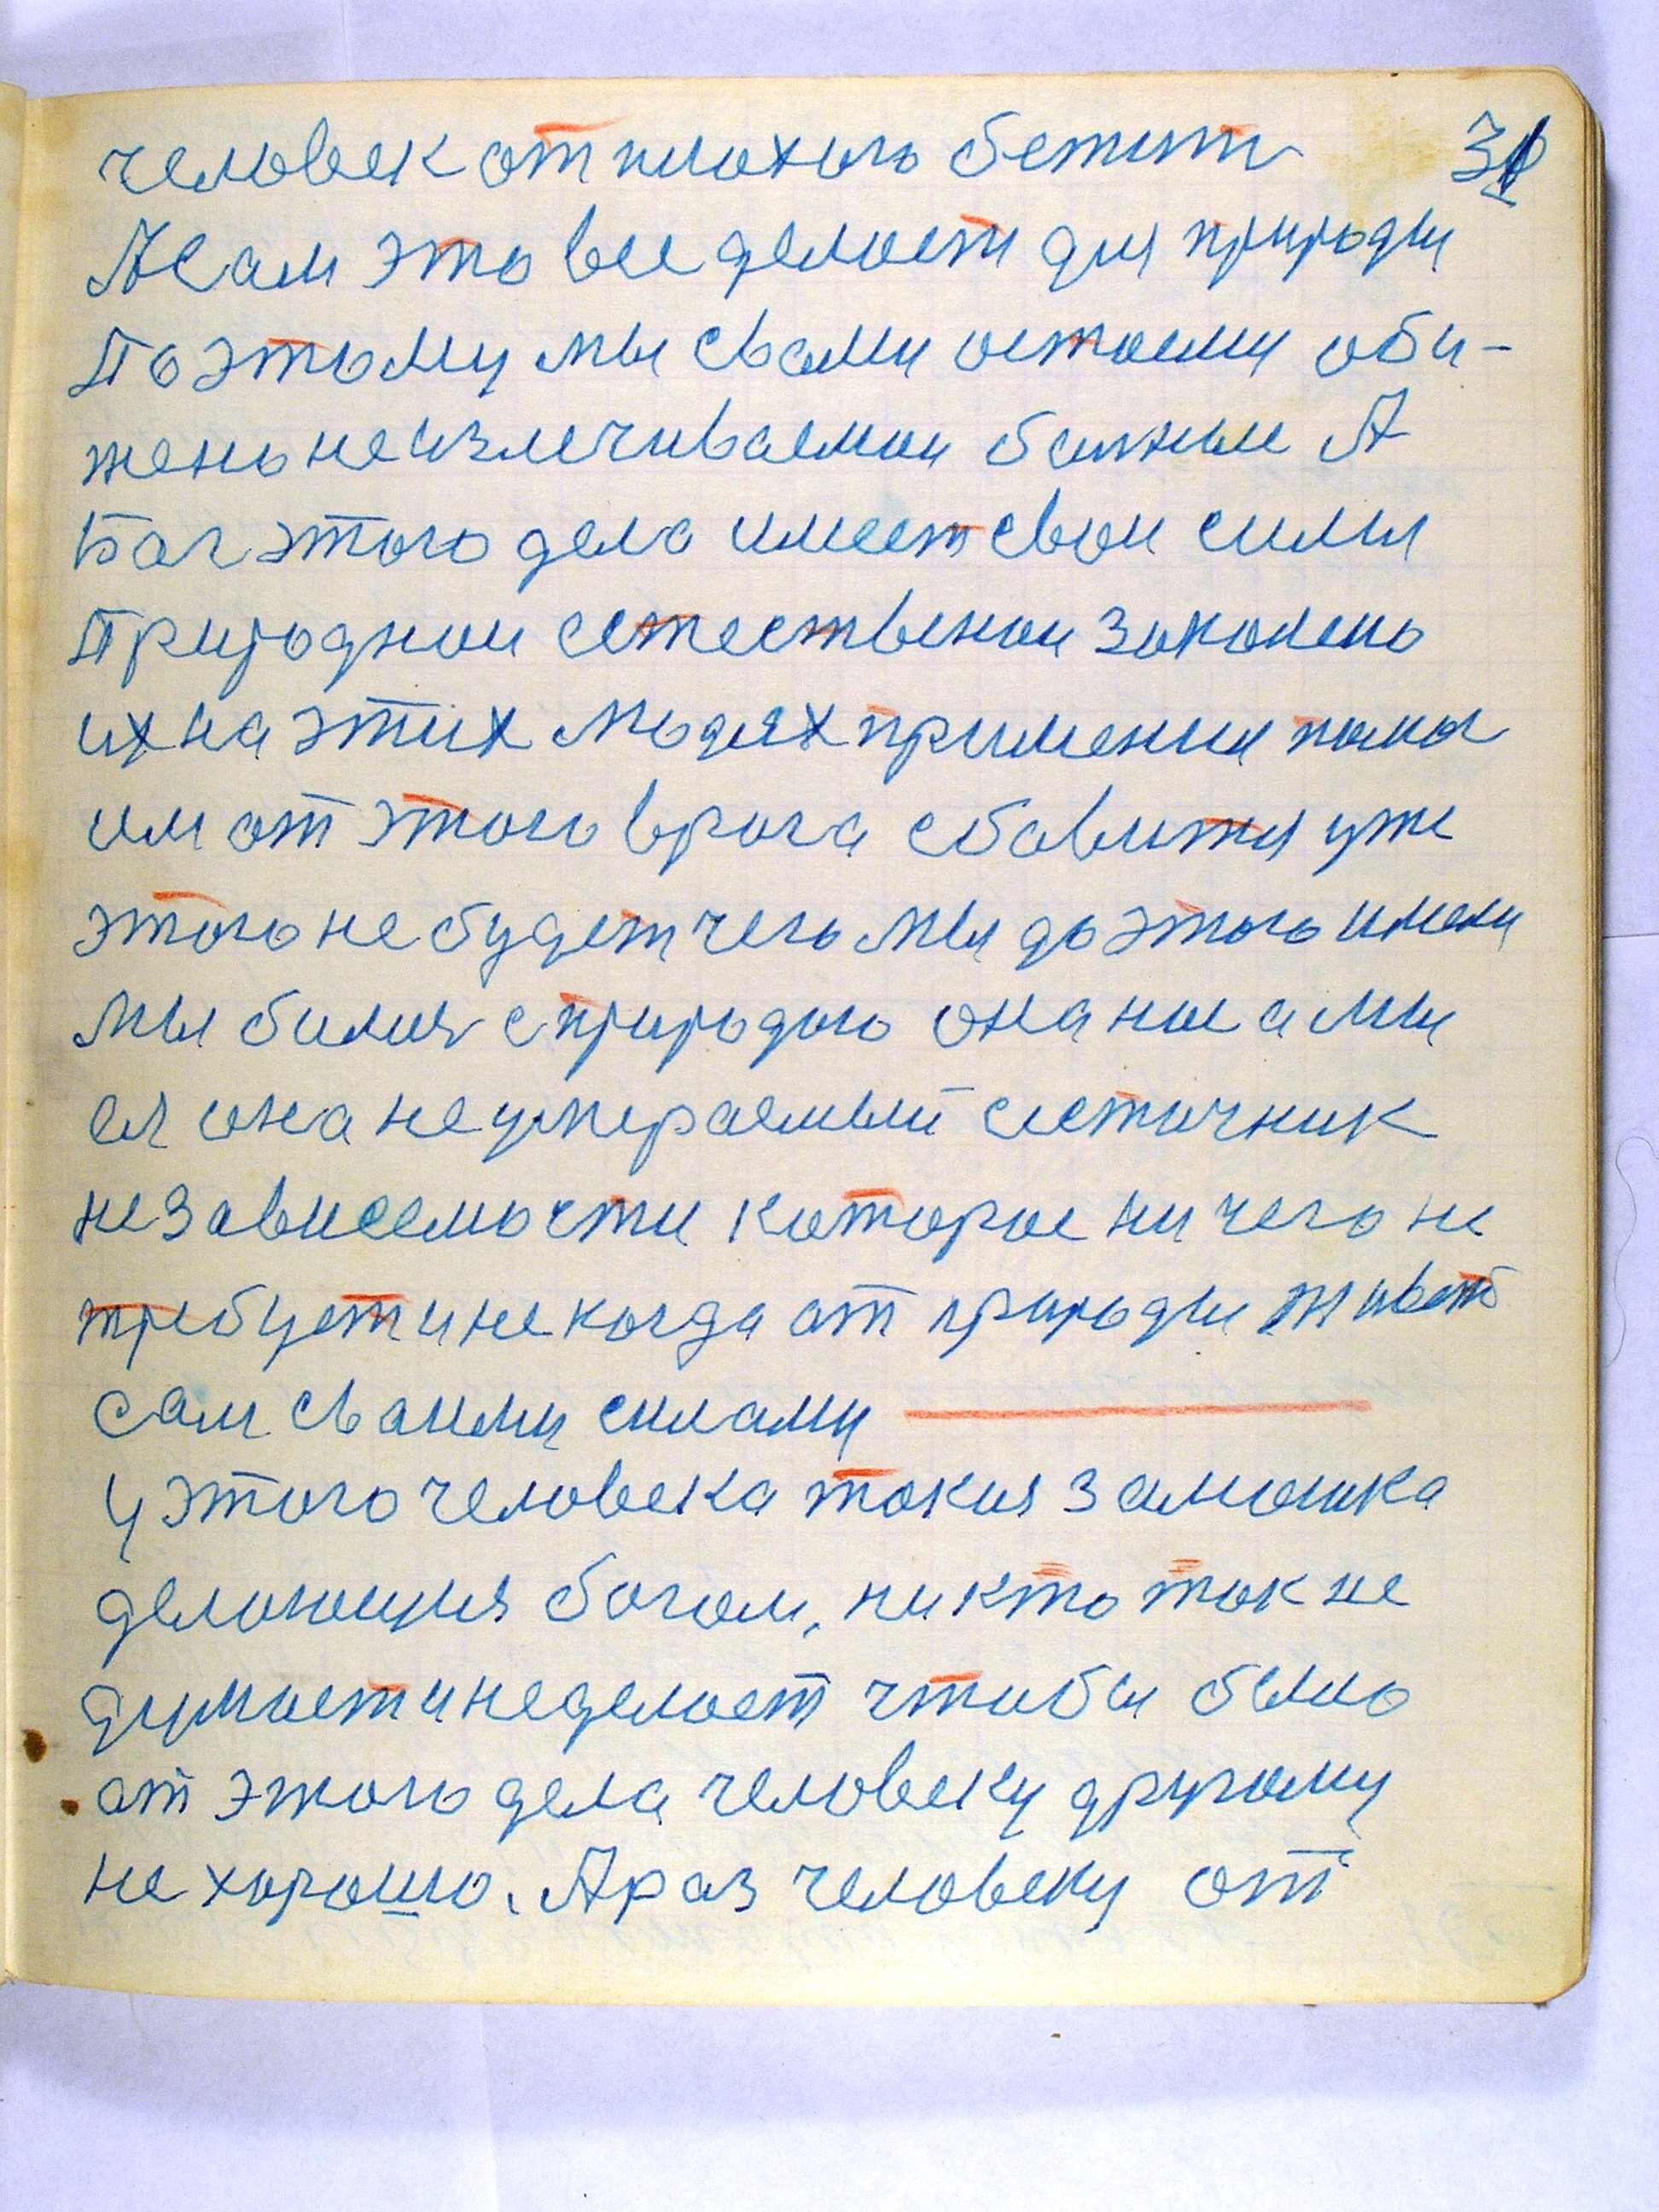 человек от плохого бежит 31
А сам это все делает для природы
Поэтому мы свами остаемы оби-
жено неизлечиваемои бальные А
Бог этого дела имеет свои силы
Природнои естественои законено
их на этих людях применил пома
им от этого врага сбавится уже
этого не будет чего мы до этого имели
мы бились с природою она нас а мы
ея она не умераемый источник
незавиcемости которое ни чего не
требует и не когда от природы живет
сам сваими силами
у этого человека такия замашка
делающия богом, ни кто так не
думает и не делает чтобы было
от этого дела человеку другому
не хорошо. А раз человеку от